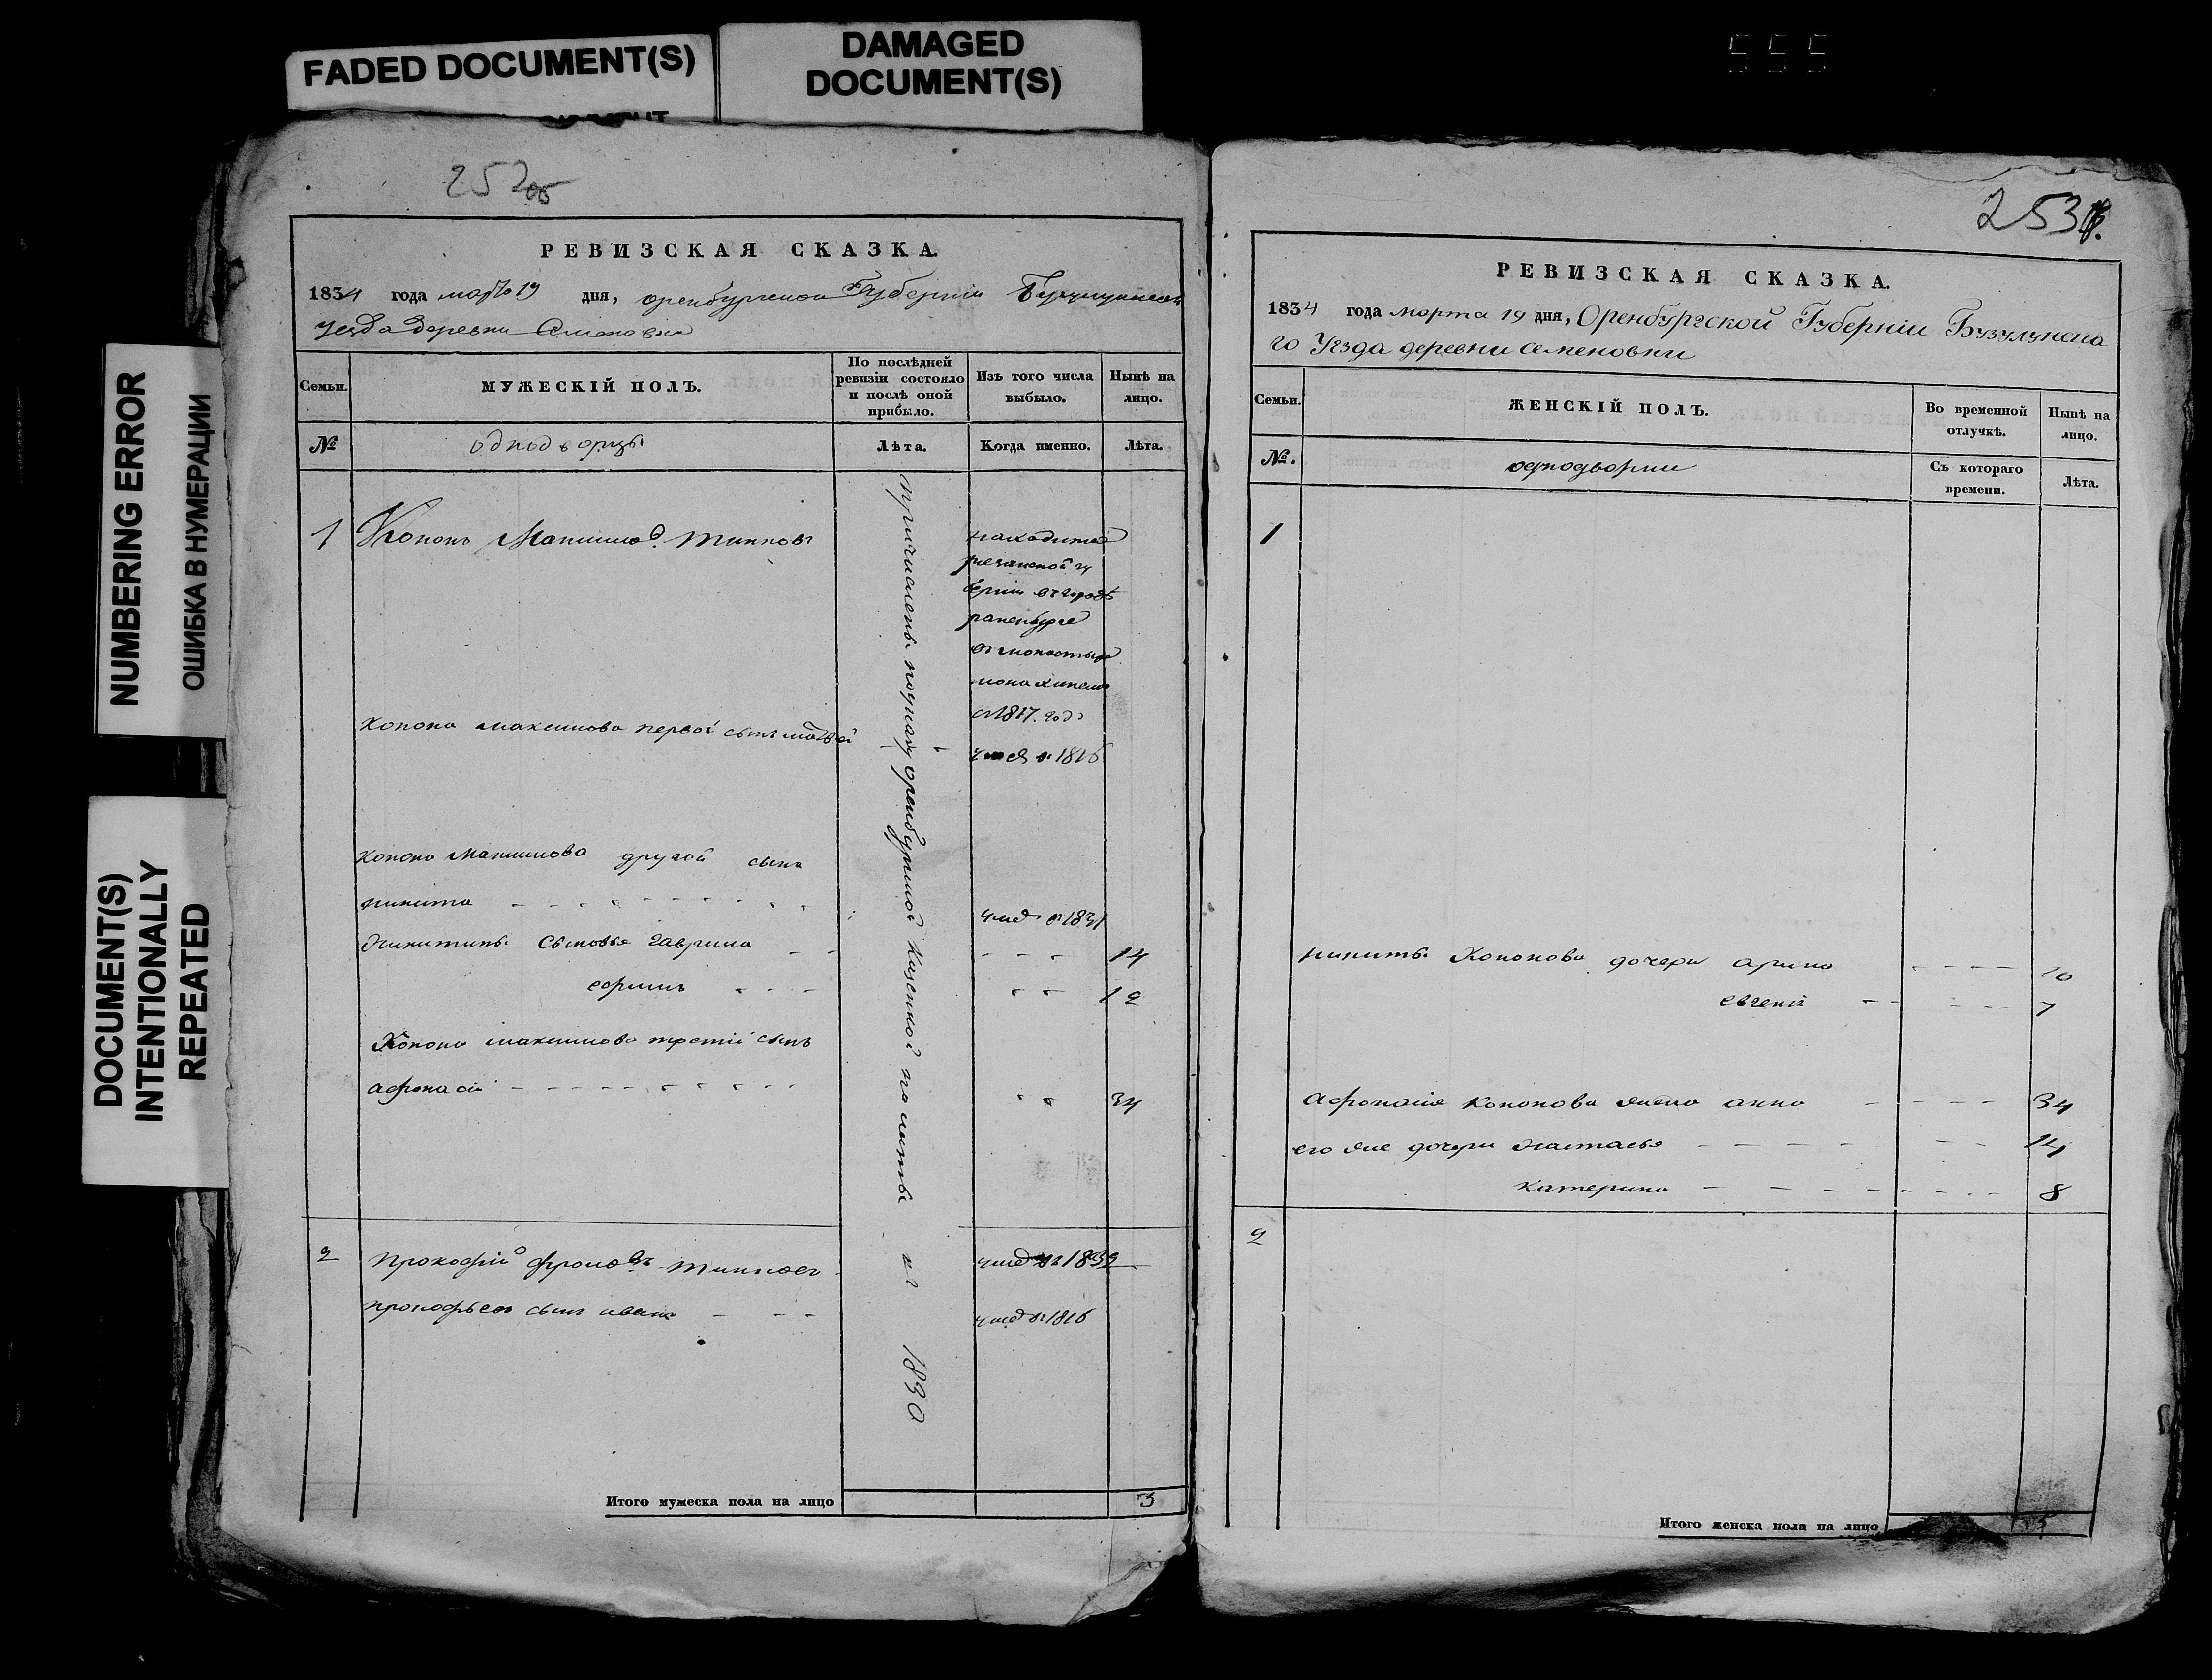 FADED DOCUMENT(S)
DAMAGED
DOCUMENT(S)
NUMBERING ERROR
ОШИБКА В НУМЕРАЦИИ
DOCUMENT(S)
INTENTIONALLY
REPEATED
252об
РЕВИЗСКАЯ СКАЗКА.
1834 года марта 19 дня, оренбургской Губернии
уезда деревни
Семьи.
МУЖЕСКІЙ ПОЛЪ.
По послѣдней
ревизіи состояло
и послѣ оной
прибыло.
Изъ того числа
выбыло.
Нынѣ на
лицо.
№
однодворцы
Лѣта.
Когда именно.
Лѣта.
1 Кононъ
находится
резанской гу
бернии в городѣ
раненбурге
монахинем
с 1817. года
Конона максимова первой сынъ матвей
1816
Конона максимова другой сынъ
никита
умер в 1831
никитины сыновья гаврила 14
12
Конона максимова третий сынъ
афонасий 34
причислены по указу оренбургской казенной палаты в 1830
2 прокофий
умер в 1832
прокофьев сын иванъ
умер в 1816
Итого мужеска пола на лицо 3
253
РЕВИЗСКАЯ СКАЗКА.
1834 года марта 19 дня, Оренбургской Губерніи Бузулукска
го Уезда деревни семеновки
Семьи.
ЖЕНСКІЙ ПОЛЪ.
Во временной
отлучкѣ.
Нынѣ на
лицо.
№.
однодворки
Съ котораго
времени.
Лѣта.
1
никиты Кононова дочери арина 10
7
Афонасия кононова жена анна 34
его же дочери настасья 14
катерина 8
2
Итого женска пола на лицо 5